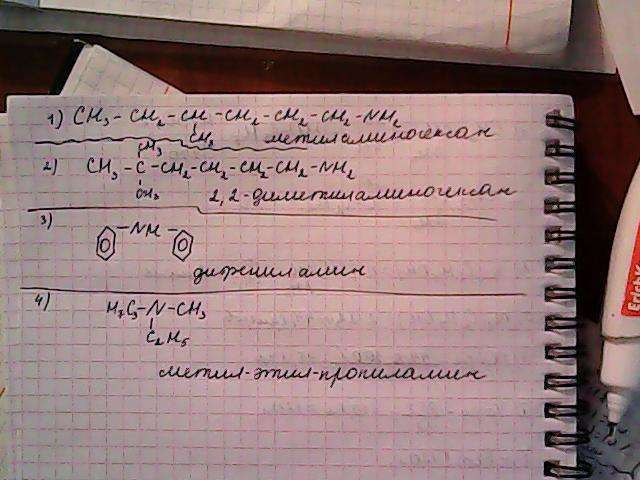 1) CH3 - CH2 - CH - CH2 - CH2 - CH2 - NH2
CH3 метиламиногексан
CH3
2) CH3 - C - CH2 - CH2 - CH2 - CH2 - NH2
CH3 2,2-диметиламиногексан
3)
- NH -
дифениламин
4) H7C3 - N - CH3
C2H5
метил-этил-пропиламин